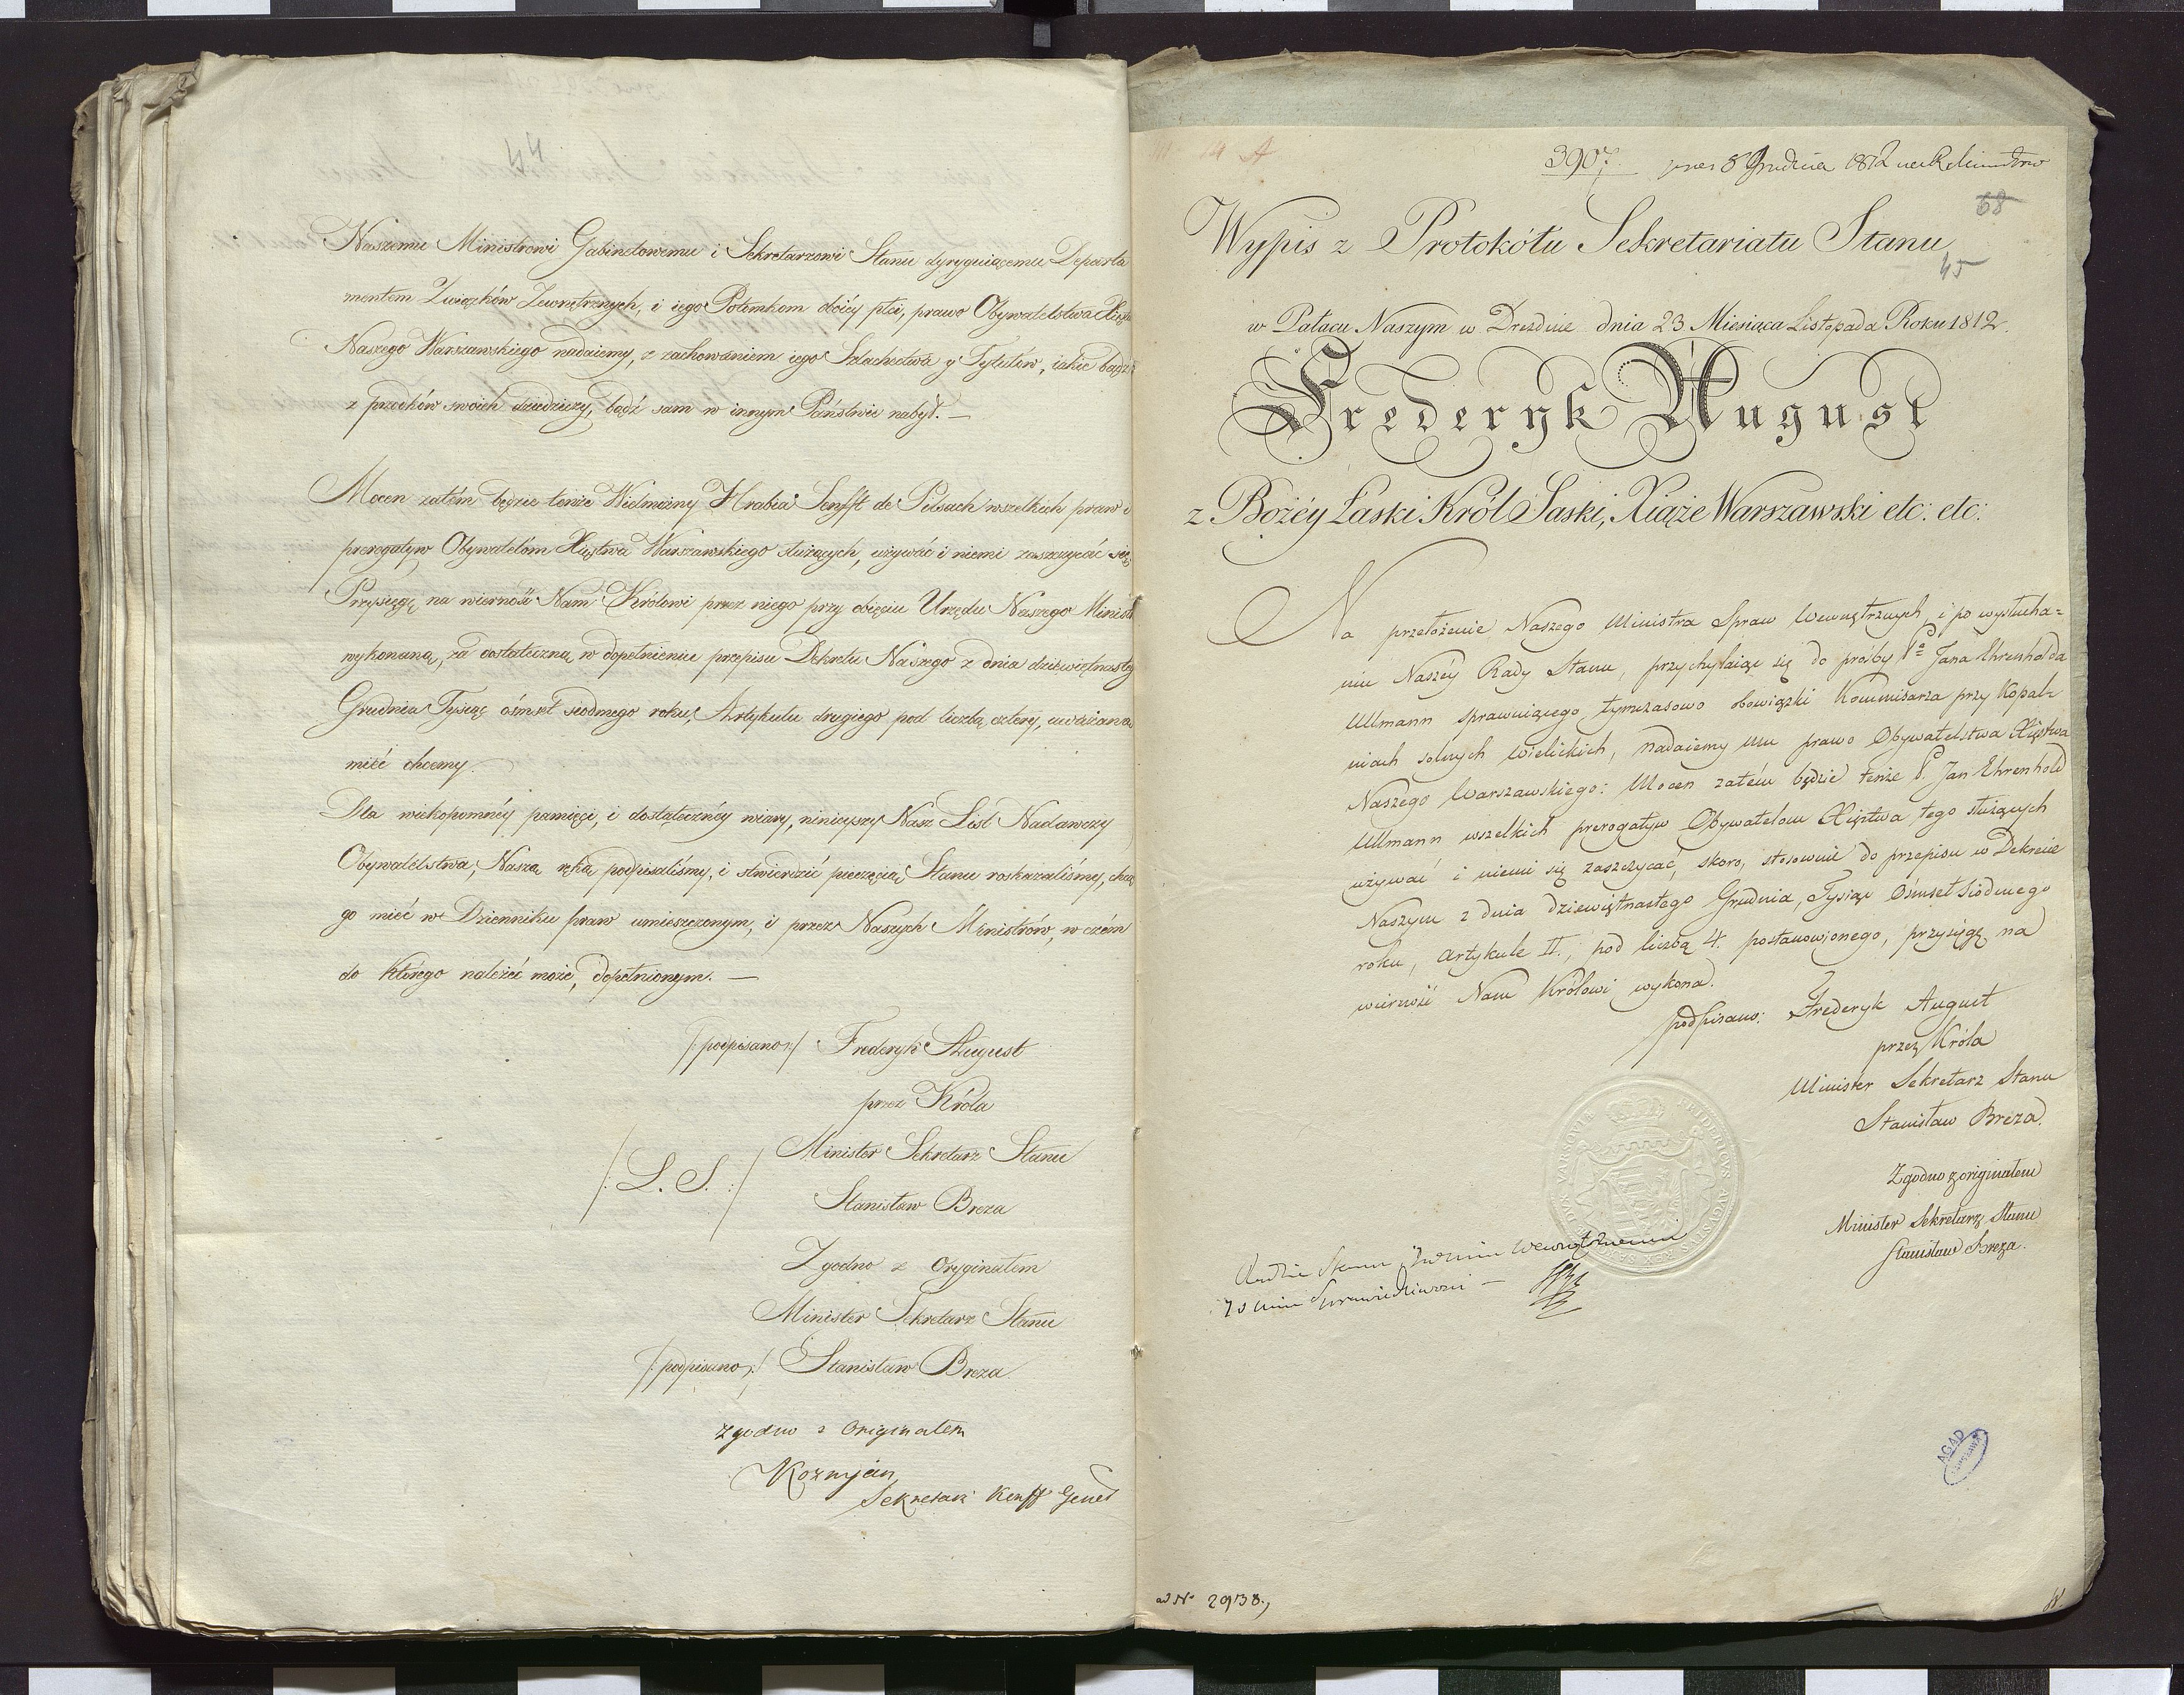 44
Naszemu Ministrowi Gabinetowemu i Sekretarzowi Stanu dyryguiącemu Departa
mentem Związków Zewnętrznych, i iego Potomkom oboiéy płci, prawo Obywatelstwa Xięs
Naszego Warszawskiego nadaiemy, z zachowaniem iego Szlachectwa y Tytułów, iakie bądź
z przodków swoich dziedziczy, bądź sam w innym Państwie nabył. —
Mocen zatém będzie tenże Wielmożny Hrabia Senfft de Pilsach wszelkich praw i
prerogatyw Obywatelóm Xięstwa Warszawskiego służących, używać i niemi zaszczycać się
Przysięgę na wierność Nam Królowi przez niego przy obięciu Urzędu Naszego Minist
wykonaną, za dostateczną w dopełnieniu przepisu Dekretu Naszego z dnia dziewiętnasteg
Grudnia Tysiąc ośmset siódmego roku, Artykułu drugiego pod liczbą cztery, uważaną
mieć chcemy.
Dla wiekopomnéy pamięci, i dostatecznéy wiary, ninieyszy Nasz List Nadawczy
Obywatelstwa, Naszą ręką podpisaliśmy, i stwierdzić pieczęcią Stanu roskazaliśmy, chcąc
go mieć w Dzienniku praw umieszczonym, i przez Naszych Ministrów, w czém
do którego należeć może, dopełnionym. —
/:podpisano:/ Frederyk August
przez Króla
Minister Sekretarz Stanu
/: L. S. :/
Stanisław Breza
Zgodno z Oryginałem
Minister Sekretarz Stanu
/:podpisano:/ Stanisław Breza
Zgodno z Originałem
Kozmjan
Sekretarz Konff Genel
3907. pres 8 Grudnia 1812
68
Wypis z Protokółu Sekretariatu Stanu
45
w Pałacu Naszym w Dreźnie dnia 23 Miesiąca Listopada Roku 1812.
Frederyk August
z Bożéy Łaski Król Saski, Xiąże Warszawski etc: etc:
Na przełożenie Naszego Ministra Spraw Wewnętrznych, i po wysłucha=
niu Naszéy Rady Stanu, przychylaiąc się do prośby Pa Jana Ehrenholda
Ullmann sprawuiącego tymczasowo obowiązki Kommisarza przy Kopal=
niach solnych Wielickich, nadaiemy mu prawo Obywatelstwa Xięstwa
Naszego Warszawskiego: Mocen zatém będzie tenże P. Jan Ehrenhold
Ullmann wszelkich prerogatyw Obywatelom Xięstwa tego służących
używać i niemi się zaszczycać, skoro, stosownie do przepisu w Dekrecie
Naszym z dnia dziewiętnastego Grudnia, Tysiąc Ośmset Siódmego
roku, Artykule II., pod liczbą 4. postanowionego, przysięgę na
wierność Nam Królowi wykona.
podpisano: Frederyk August
przez Króla
Minister Sekretarz Stanu
Stanisław Breza.
Zgodno z originałem
Minister Sekretarz Stanu
Stanisław Breza.
FRIDERICVS AVGVSTVS REX DVX VARSOVIÆ
AGAD
WARSZAWA
ad No 2938.,